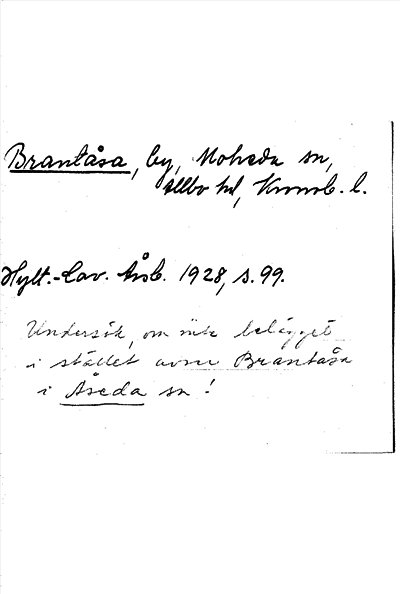 Brantåsa, by, Moheda sn,
Allbo hd, Kronob. l.
Hylt.-Cav. Årsb. 1928, s. 99.
Undersök, om icke belägget
i stället avser Brantåsa
i Aseda sn!